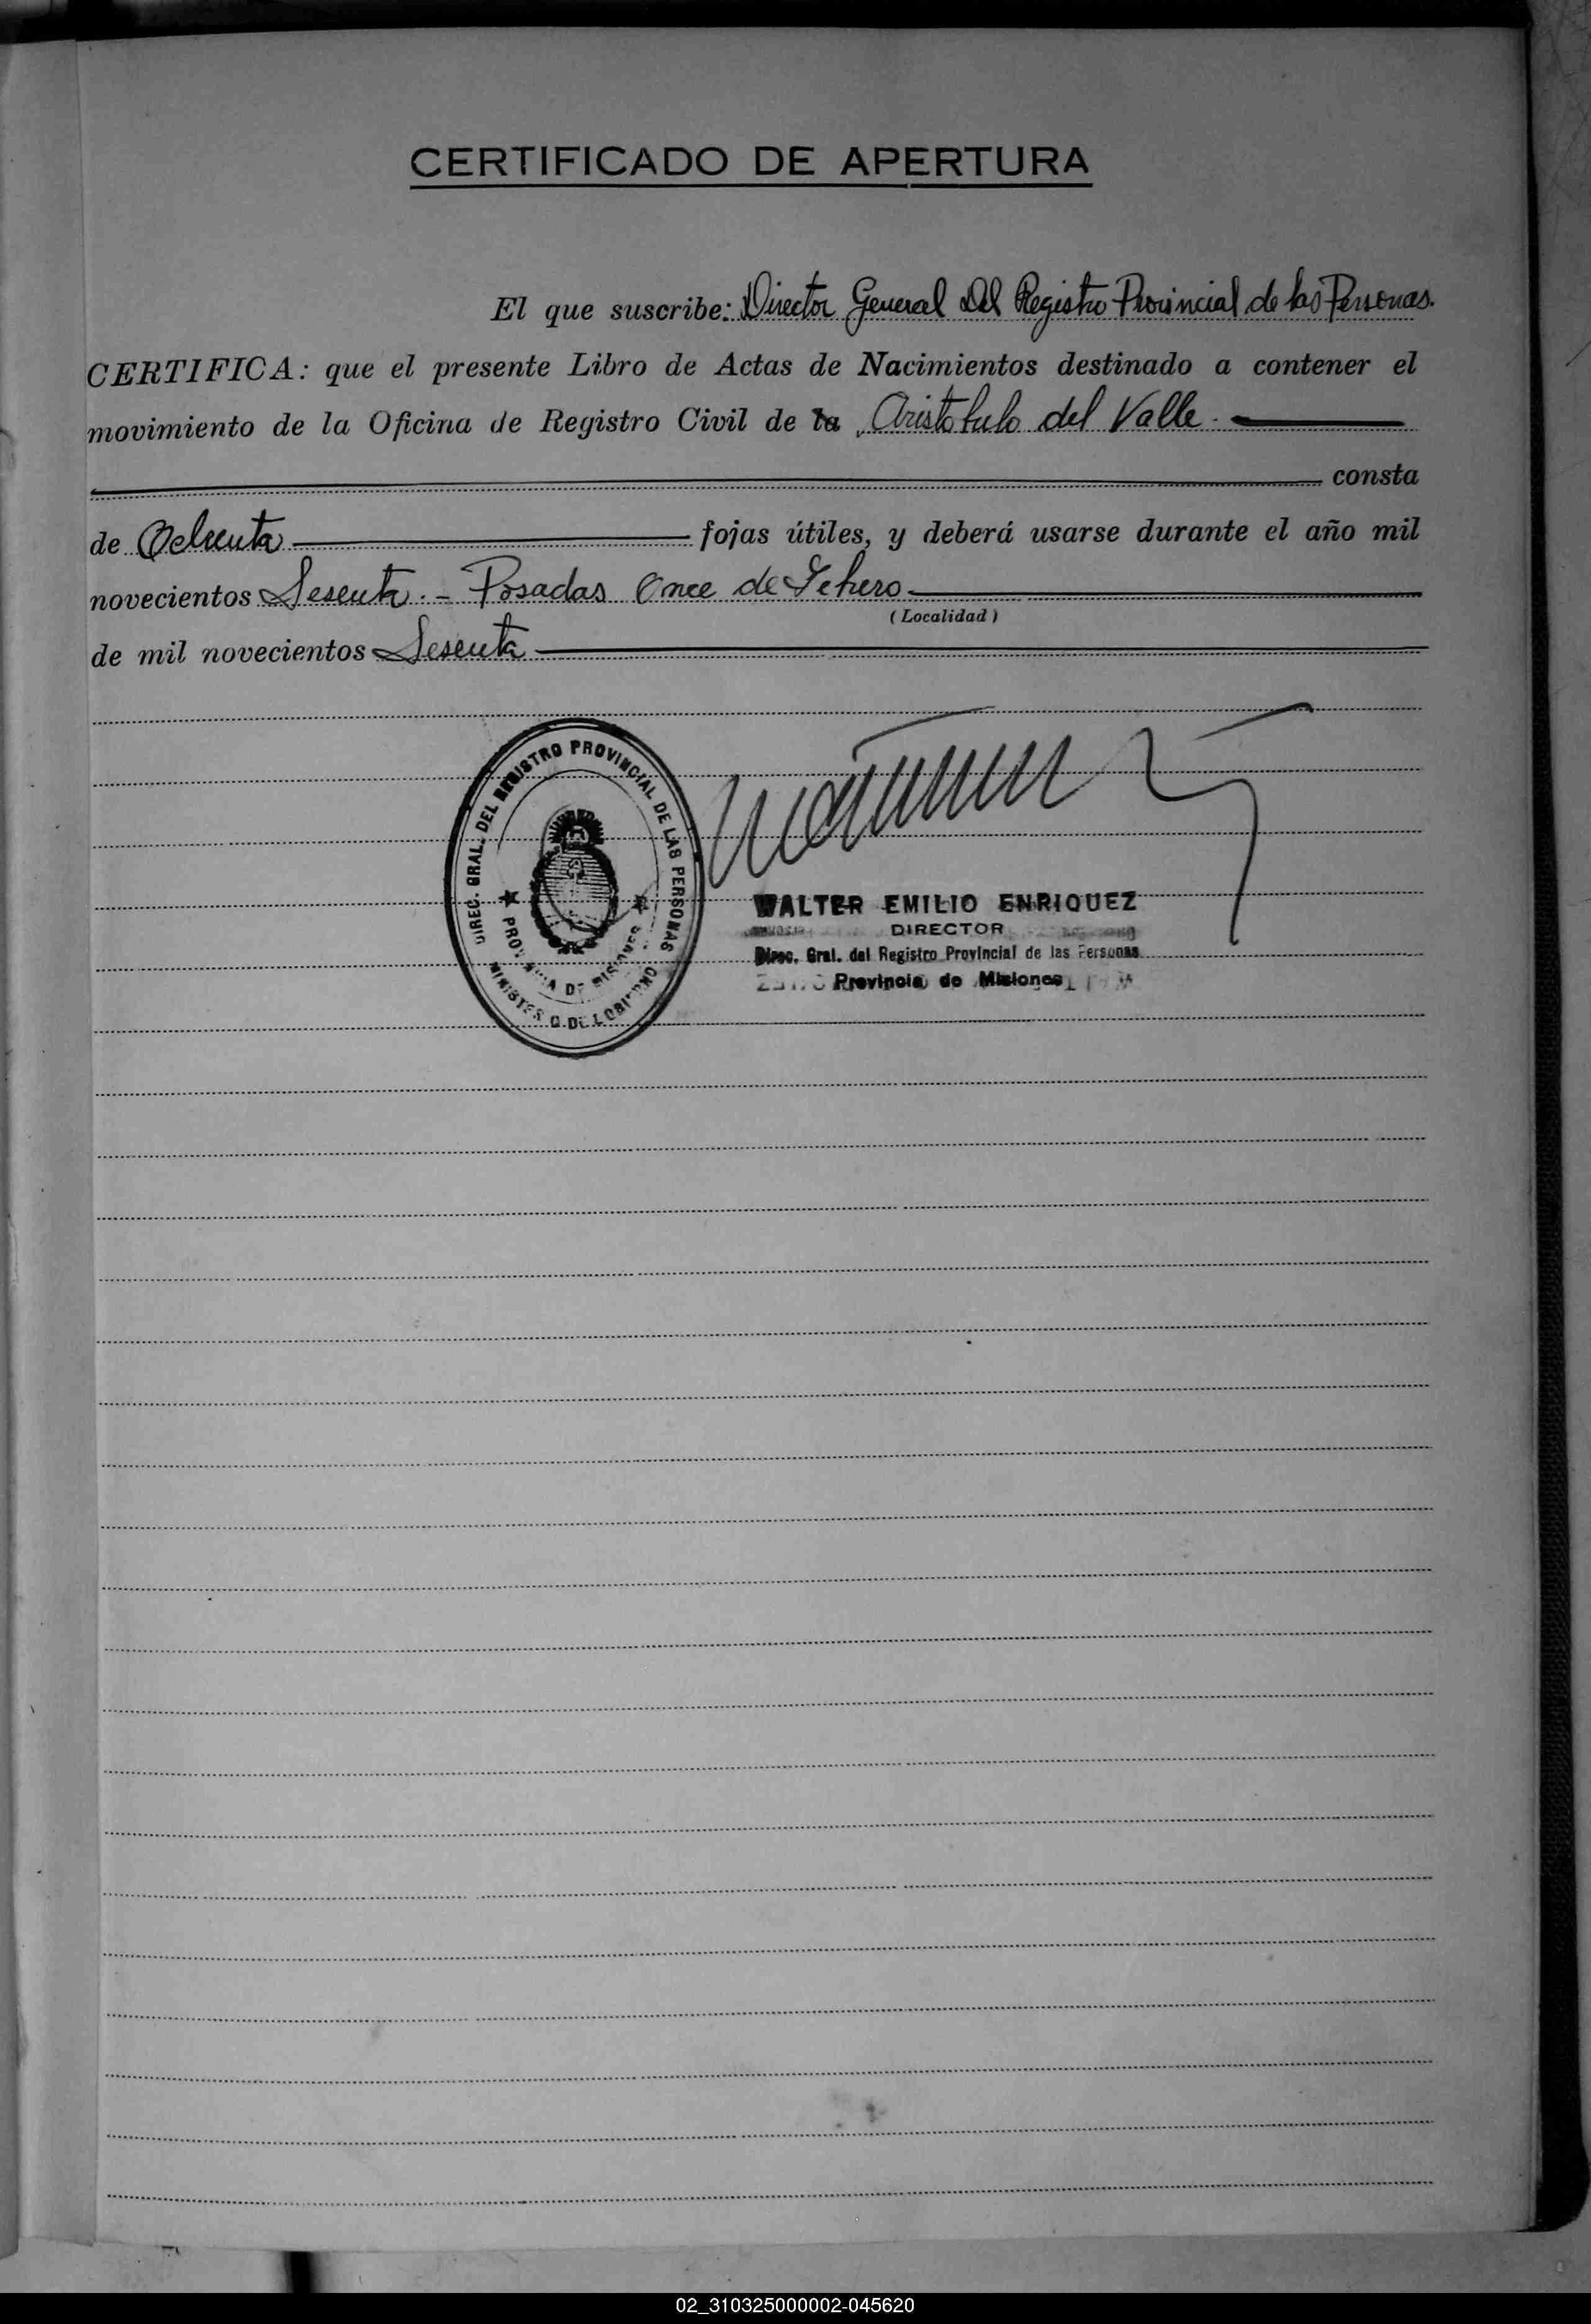 CERTIFICADO DE APERTURA
El que suscribe: Director General Del Registro Provincial de las Personas.
CERTIFICA: que el presente Libro de Actas de Nacimientos destinado a contener el
movimiento de la Oficina de Registro Civil de la Aristobulo del Valle.
consta
de Ochenta fojas útiles, y deberá usarse durante el año mil
novecientos Sesenta. - Posadas Once de Febrero
(Localidad)
de mil novecientos Sesenta
DIREC. GRAL. DEL REGISTRO PROVINCIAL DE LAS PERSONAS
PROVINCIA DE MISIONES
MINISTERIO DE GOBIERNO
WALTER EMILIO ENRIQUEZ
DIRECTOR
Direc. Gral. del Registro Provincial de las Personas
Provincia de Misiones
02_310325000002-045620